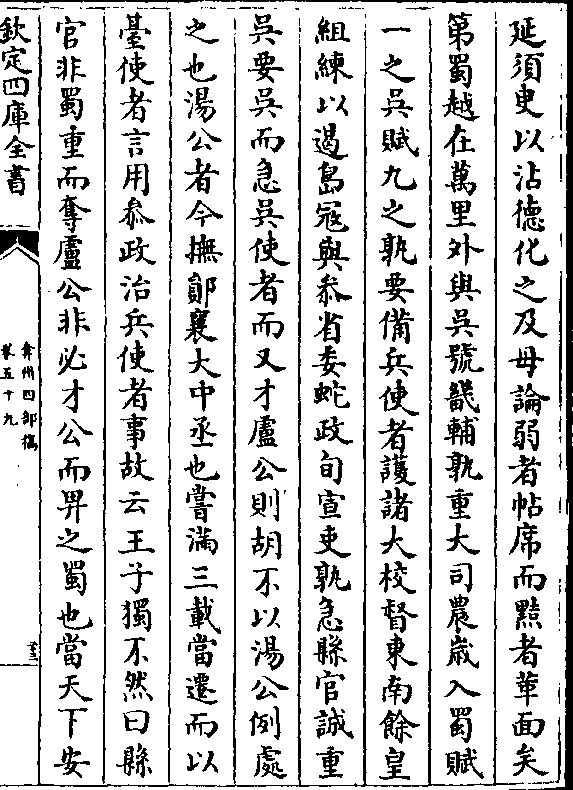 延須臾以沾德化之及毋論弱者帖席而黠者革面矣
第蜀越在萬里外與吳號畿輔孰重大司農歲入蜀賦
一之吳賦九之孰要備兵使者護諸大校督東南餘皇
組練以遏島寇與叅省委蛇政旬宣吏孰急縣官誠重
吳要吳而急吳使者而又才盧公則胡不以湯公例處
之也湯公者今撫鄖襄大中丞也嘗滿三載當遷而以
臺使者言用叅政治兵使者事故云王子獨不然曰縣
官非蜀重而奪盧公非必才公而畀之蜀也當天下安
欽定四庫全書
弇州四部稿
卷五十九